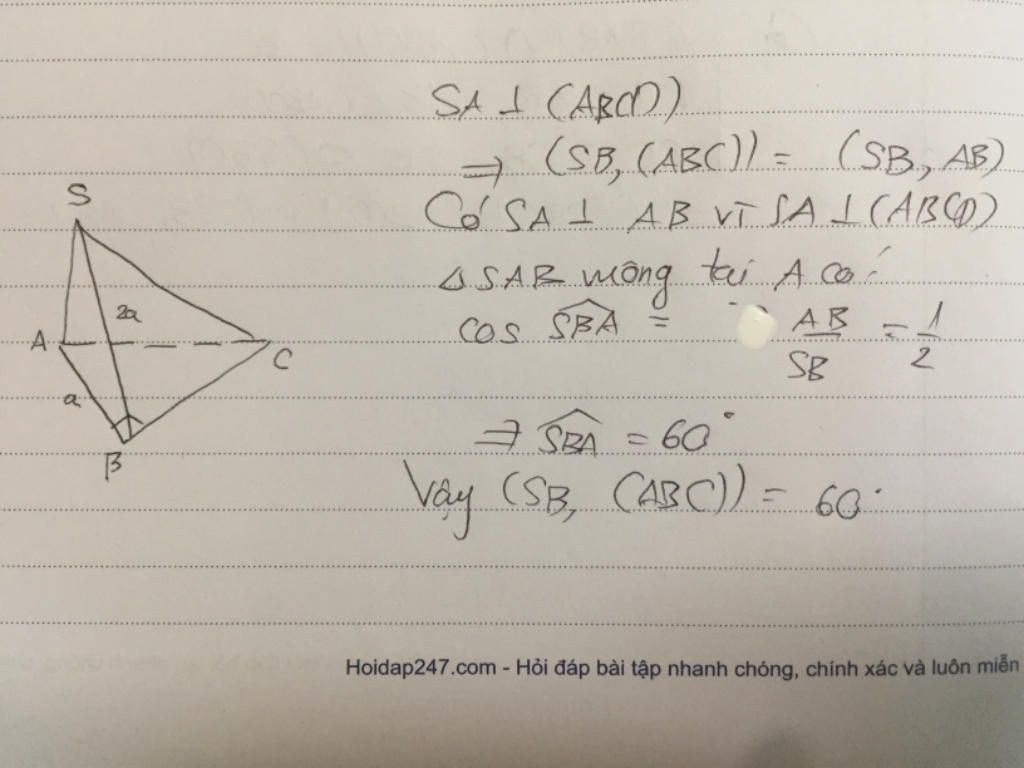 SA ⊥ (ABCD)
⇒ (SB, (ABC)) = (SB, AB)
Có SA ⊥ AB vì SA ⊥ (ABCD)
S
A
2a
a
C
B
Δ SAB vuông tại A có:
cos SBA = AB/SB = 1/2
⇒ SBA = 60°
Vậy (SB, (ABC)) = 60°
Hoidap247.com - Hỏi đáp bài tập nhanh chóng, chính xác và luôn miễn